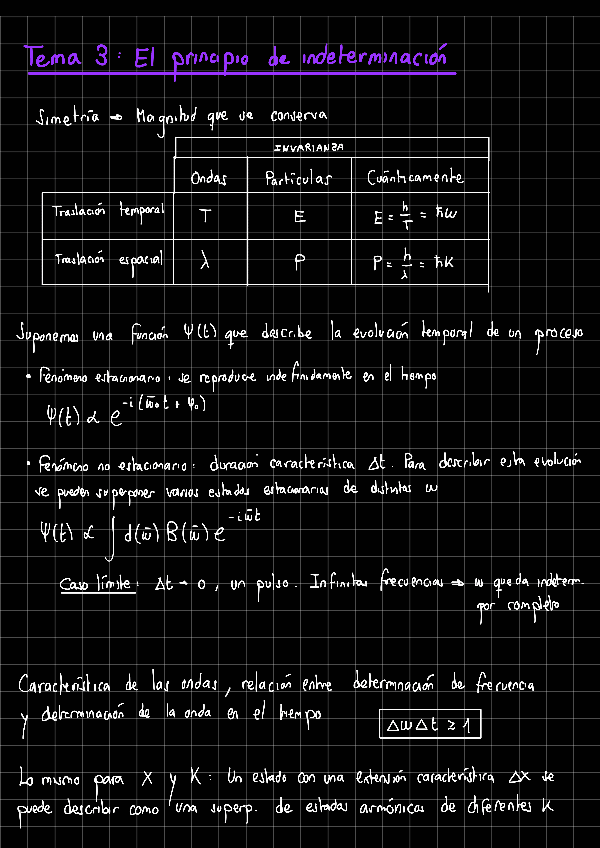 Tema 3: El principio de indeterminación
Simetría → Magnitud que se conserva
INVARIANZA
Ondas Partículas Cuánticamente
Traslación temporal T E E = h/T = ħω
Traslación espacial λ P P = h/λ = ħK
Suponemos una función Ψ(t) que describe la evolución temporal de un proceso
• Fenómeno estacionario: se reproduce indefinidamente en el tiempo
Ψ(t) ∝ e^{-i(ω̄₀t + φ₀)}
• Fenómeno no estacionario: duración característica Δt. Para describir esta evolución
se pueden superponer varios estados estacionarios de distintas ω
Ψ(t) ∝ ∫ d(ω̄) B(ω̄) e^{-iω̄t}
Caso límite: Δt → 0, un pulso. Infinitas frecuencias ⇒ ω queda indeterm.
por completo
Característica de las ondas, relación entre determinación de frecuencia
y determinación de la onda en el tiempo ΔωΔt ≥ 1
Lo mismo para X y K: Un estado con una extensión característica Δx se
puede describir como una superp. de estados armónicos de diferentes K